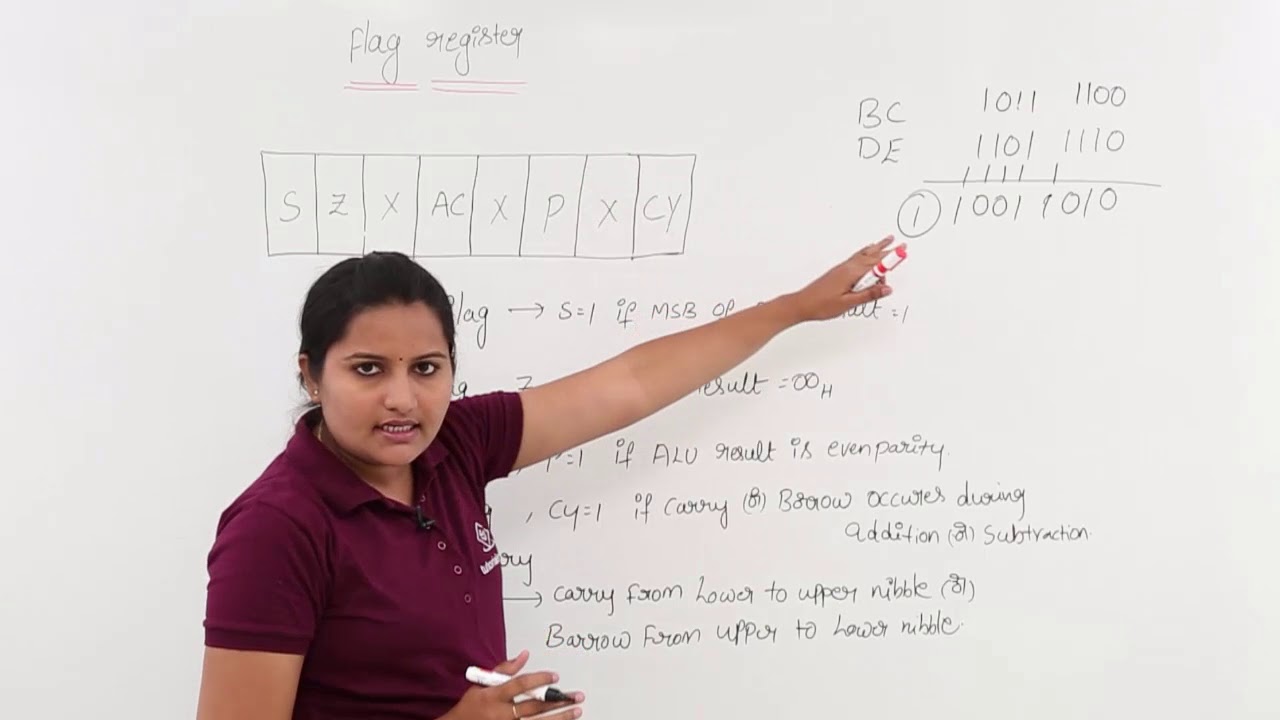 Flag register
BC 1011 1100
DE 1101 1110
1 1 1 1 1
1 1001 1010
S Z X AC X P X CY
flag → S=1 if MSB of =1
result = 00H
P=1 if ALU result is even parity.
, CY=1 if carry (or) Borrow occures during
Addition (or) Subtraction.
ory
→ carry from Lower to upper nibble (or)
Barrow From upper to Lower nibble.